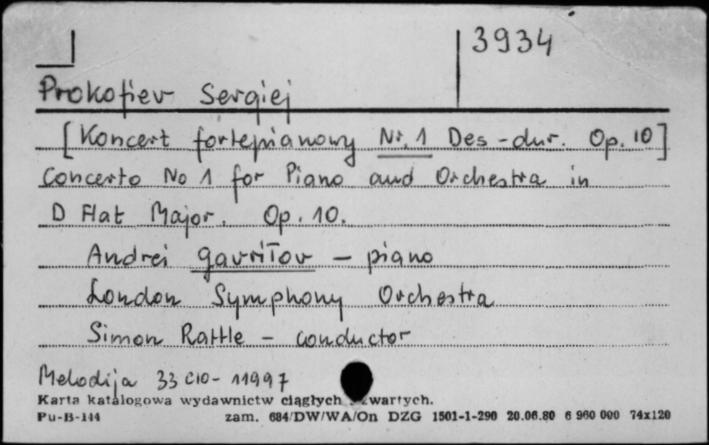 3934
Prokofiev Sergiej
[Koncert fortepianowy Nr. 1 Des-dur. Op. 10]
Concerto No 1 for Piano and Orchestra in
D Flat Major. Op. 10.
Andrei Gavriłov – piano
London Symphony Orchestra
Simon Rattle – conductor
Melodija 33 C10-11997
Karta katalogowa wydawnictw ciągłych zwartych.
Pu-B-144 zam. 684/DW/WA/On DZG 1501-1-290 20.06.80 6 960 000 74x120